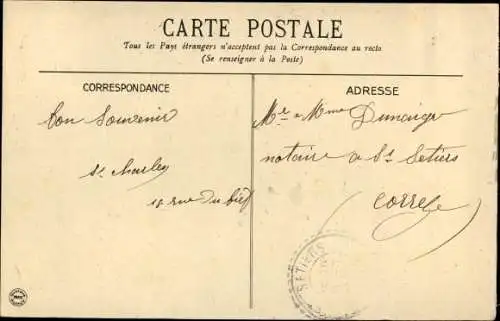 CARTE POSTALE
Tous les Pays étrangers n'acceptent pas la Correspondance au recto
(Se renseigner à la Poste)
CORRESPONDANCE
Bon Souvenir
St Charles
10 rue du bief
ADRESSE
Mr & Mme Dumaige
notaire a St Setiers
Correze
St SETIERS